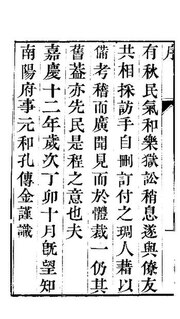 序
有秋民氣和樂獄訟稍息遂與僚友
共相採訪手自刪訂付之琱人藉以
備考稽而廣開見而於體裁一仍其
舊葢亦先民是程之意也夫
嘉慶十二年歲次丁卯十月既望知
南陽府事元和孔傳金謹識